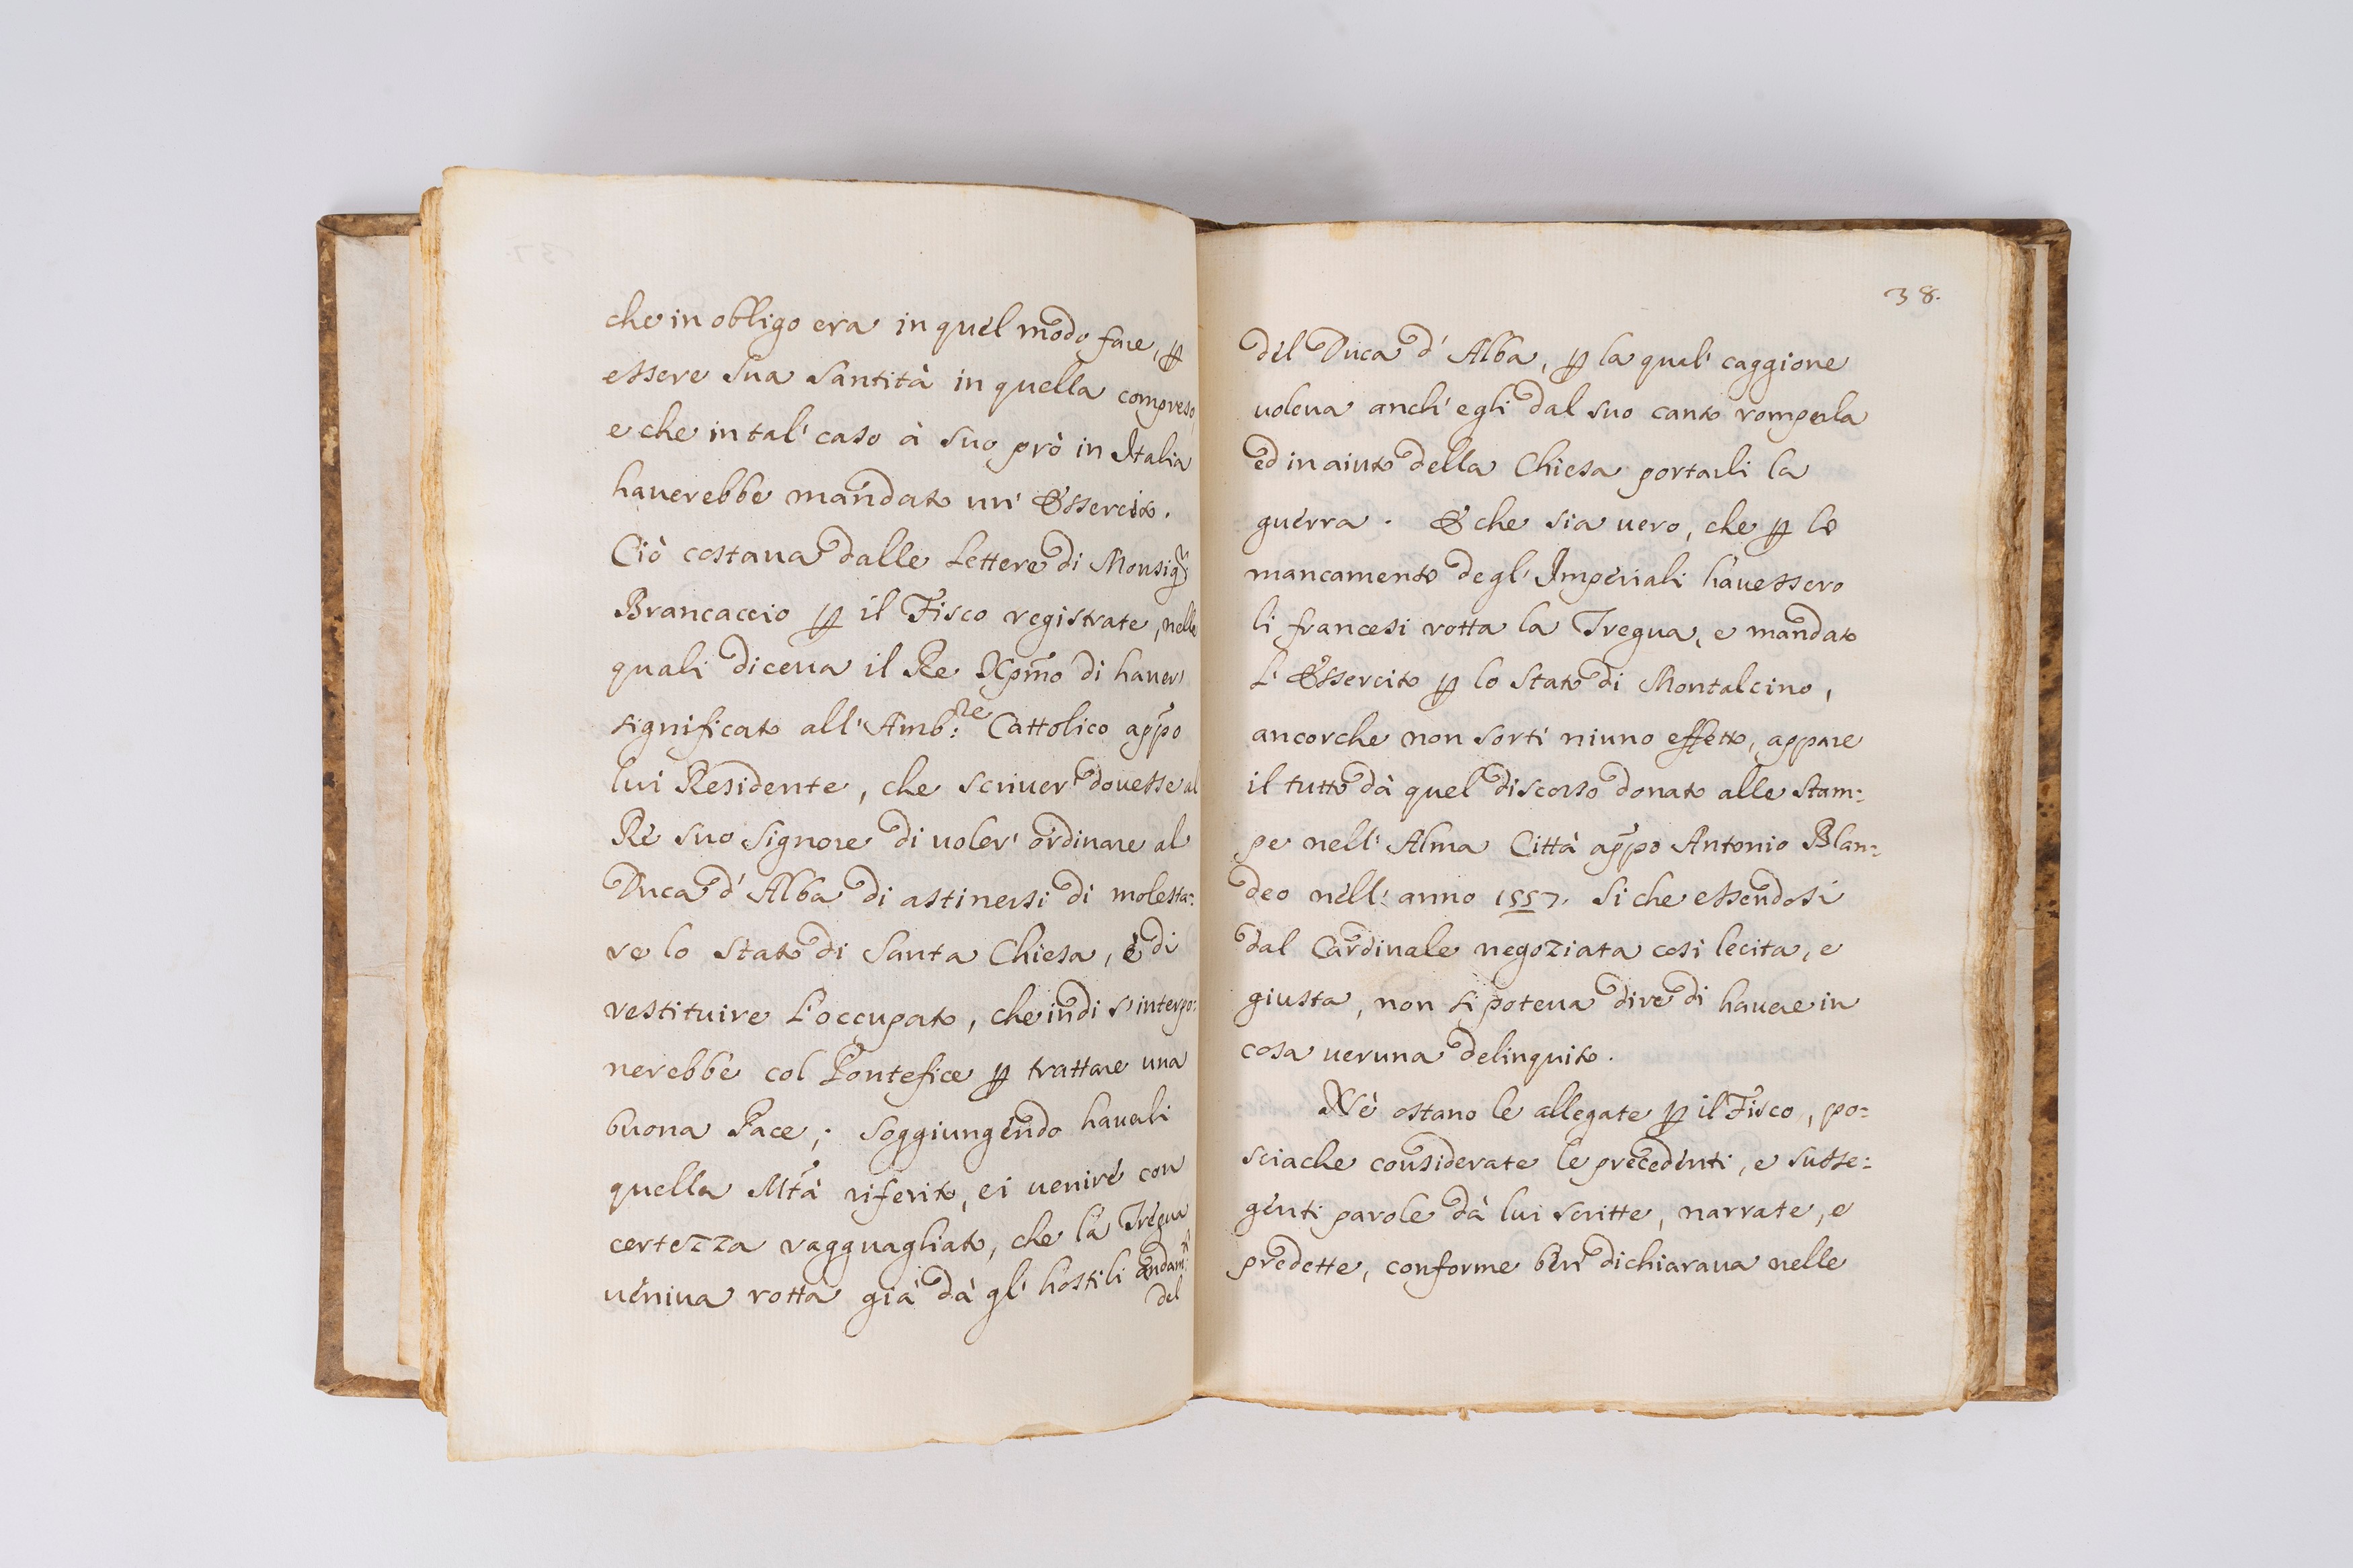 che in obligo era in quel modo fare, ꝑ
essere sua Santità in quella compreso,
e che in tal' caso à suo prò in Italia
hauerebbe mandato un' Essercito.
Ciò costaua dalle Lettere di Monsig.r
Brancaccio ꝑ il Fisco registrate, nelle
quali diceua il Re Xpm̃o di hauer'
significato all' Amb:re Cattolico app̃o
lui Residente, che scriuer' douesse al
Rè suo Signore di uoler' ordinare al
Duca d' Alba di astinersi di molesta:
re lo Stato di Santa Chiesa, è di
restituire L'occupato, che indi s' interpo:
nerebbe col Pontefice ꝑ trattare una
buona Pace; soggiungendo hauerli
quella Mtà riferito, ei uenire con
certezza ragguagliato, che la Tregua
ueniua rotta già dà gl' hostili andam.ti
del
38.
del Duca d' Alba, ꝑ la qual' caggione
uoleua anch' egli dal suo canto romperla
ed in aiuto della Chiesa portarli la
guerra. E che sia uero, che ꝑ lo
mancamento degl' Imperiali hauessero
li francesi rotta la Tregua, e mandato
L' Essercito ꝑ lo Stato di Montalcino,
ancorche non sortì niuno effetto, appare
il tutto dà quel discorso donato alle Stam:
pe nell' Alma Città app̃o Antonio Blan:
deo nell' anno 1557. Si che essendosi
dal Cardinale negoziata cosi lecita, e
giusta, non si poteua dire di hauere in
cosa ueruna delinquito.
Nè ostano le allegate ꝑ il Fisco, po:
sciache considerate le precedenti, e susse:
genti parole dà lui scritte, narrate, e
predette, conforme ben' dichiaraua nelle